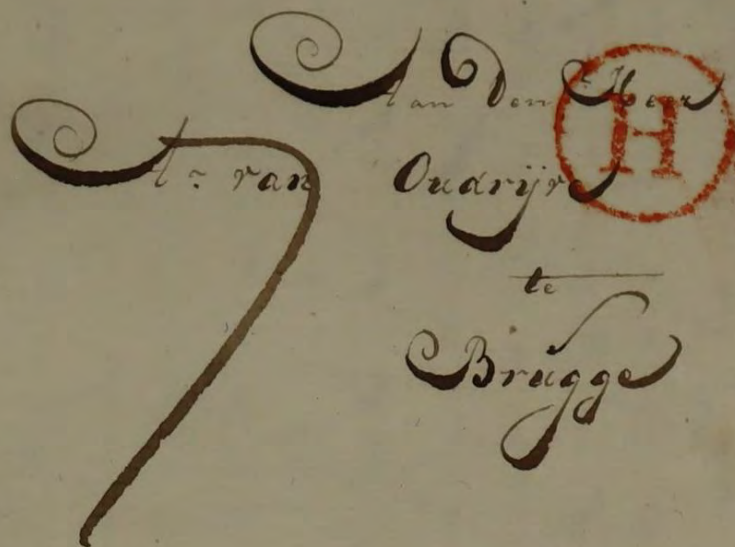 Aan Den Heer
H
A: van Oudrijve
te
Brugge
7